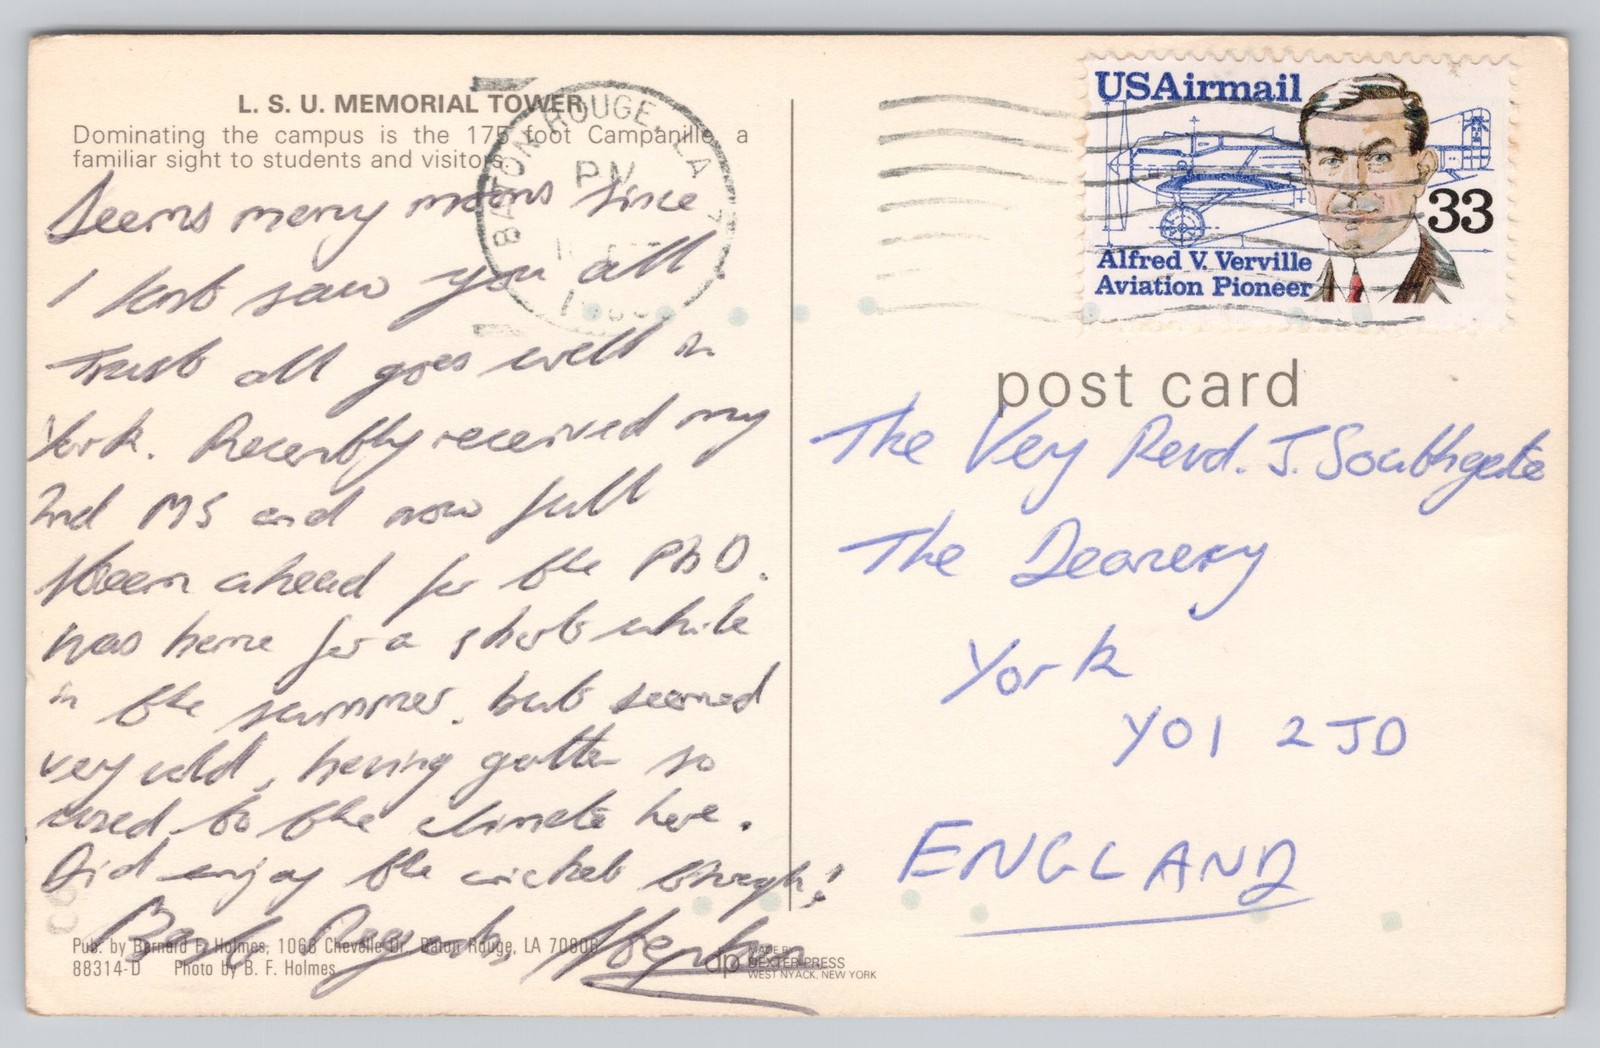 L. S. U. MEMORIAL TOWER
Dominating the campus is the 175 foot Campanille, a
familiar sight to students and visitors.
Seems many moons since
I last saw you all
Trust all goes well in
York. Recently received my
2nd MS and now full
steam ahead for the PhD.
Was home for a short while
in the summer, but seemed
very cold, having gotten so
used to the climate here.
Did enjoy the cricket though!
Best Regards Stephen
Pub. by Bernard F. Holmes, 1066 Chevelle Dr., Baton Rouge, LA 70806
88314-D Photo by B. F. Holmes
dp MADE BY
DEXTER PRESS
WEST NYACK, NEW YORK
BATON ROUGE, LA
PM
USAirmail
33
Alfred V. Verville
Aviation Pioneer
post card
The Very Revd. J. Southgate
The Deanery
York
YO1 2JD
ENGLAND